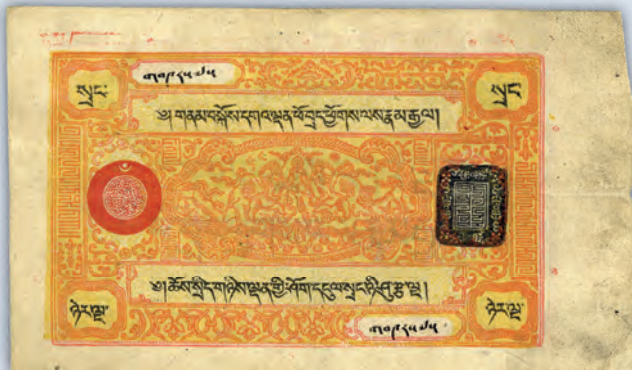 སྲང་
སྲང་
༄༅། གནམ་བསྐོས་དགའ་ལྡན་ཕོ་བྲང་ཕྱོགས་ལས་རྣམ་རྒྱལ།
༄༅། ཆོས་སྲིད་གཉིས་ལྡན་གྱི་ཤོག་དངུལ་སྲང་ཉི་ཤུ་རྩ་ལྔ།
ཉེར་ལྔ་
ཉེར་ལྔ་